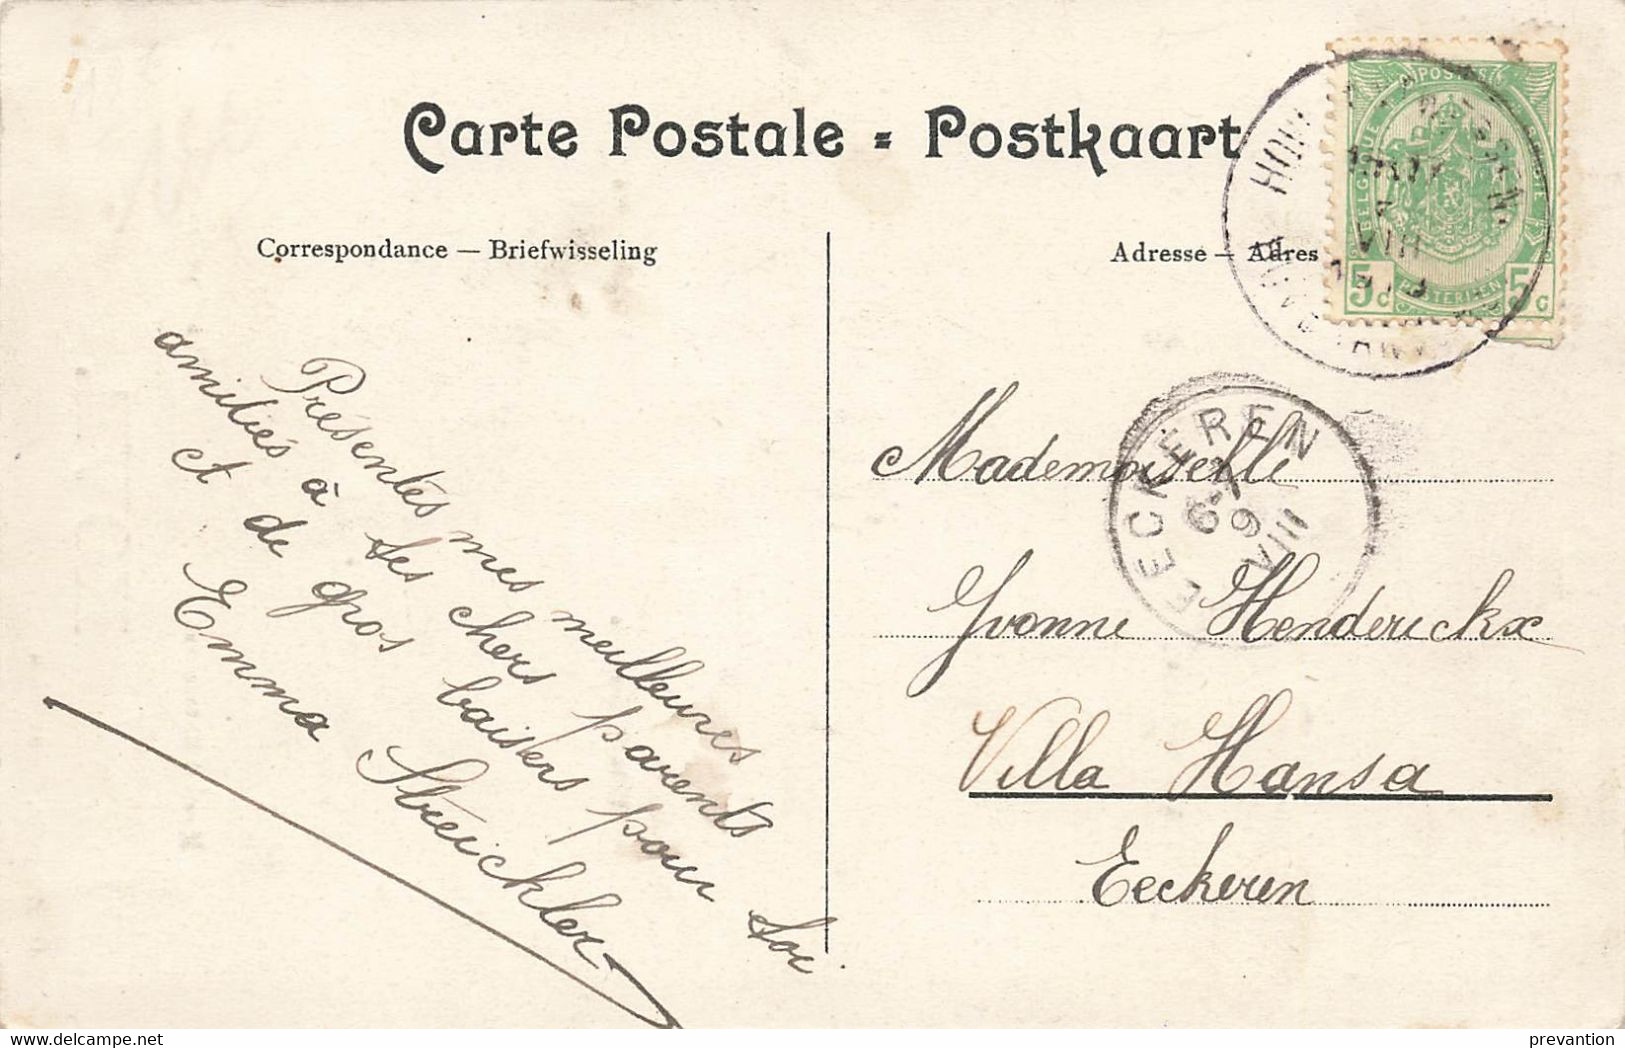 Carte Postale = Postkaart
Correspondance — Briefwisseling
Adresse — Adres
POSTES
BELGIQUE
POSTERIJEN
5c 5c
VIII
EECKEREN
6-7
9
VIII
Présentes mes meilleures
amitiés à tes chers parents
et de gros baisers pour toi
Emma Streichler
Mademoiselle
Yvonne Henderickx
Villa Hansa
Eeckeren
www.delcampe.net
prevantion